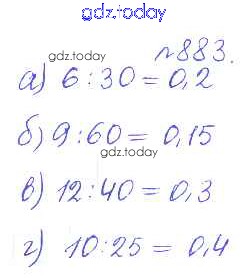 gdz.today
№883.
gdz.today
а) 6 : 30 = 0,2
б) 9 : 60 = 0,15
gdz.today
в) 12 : 40 = 0,3
г) 10 : 25 = 0,4